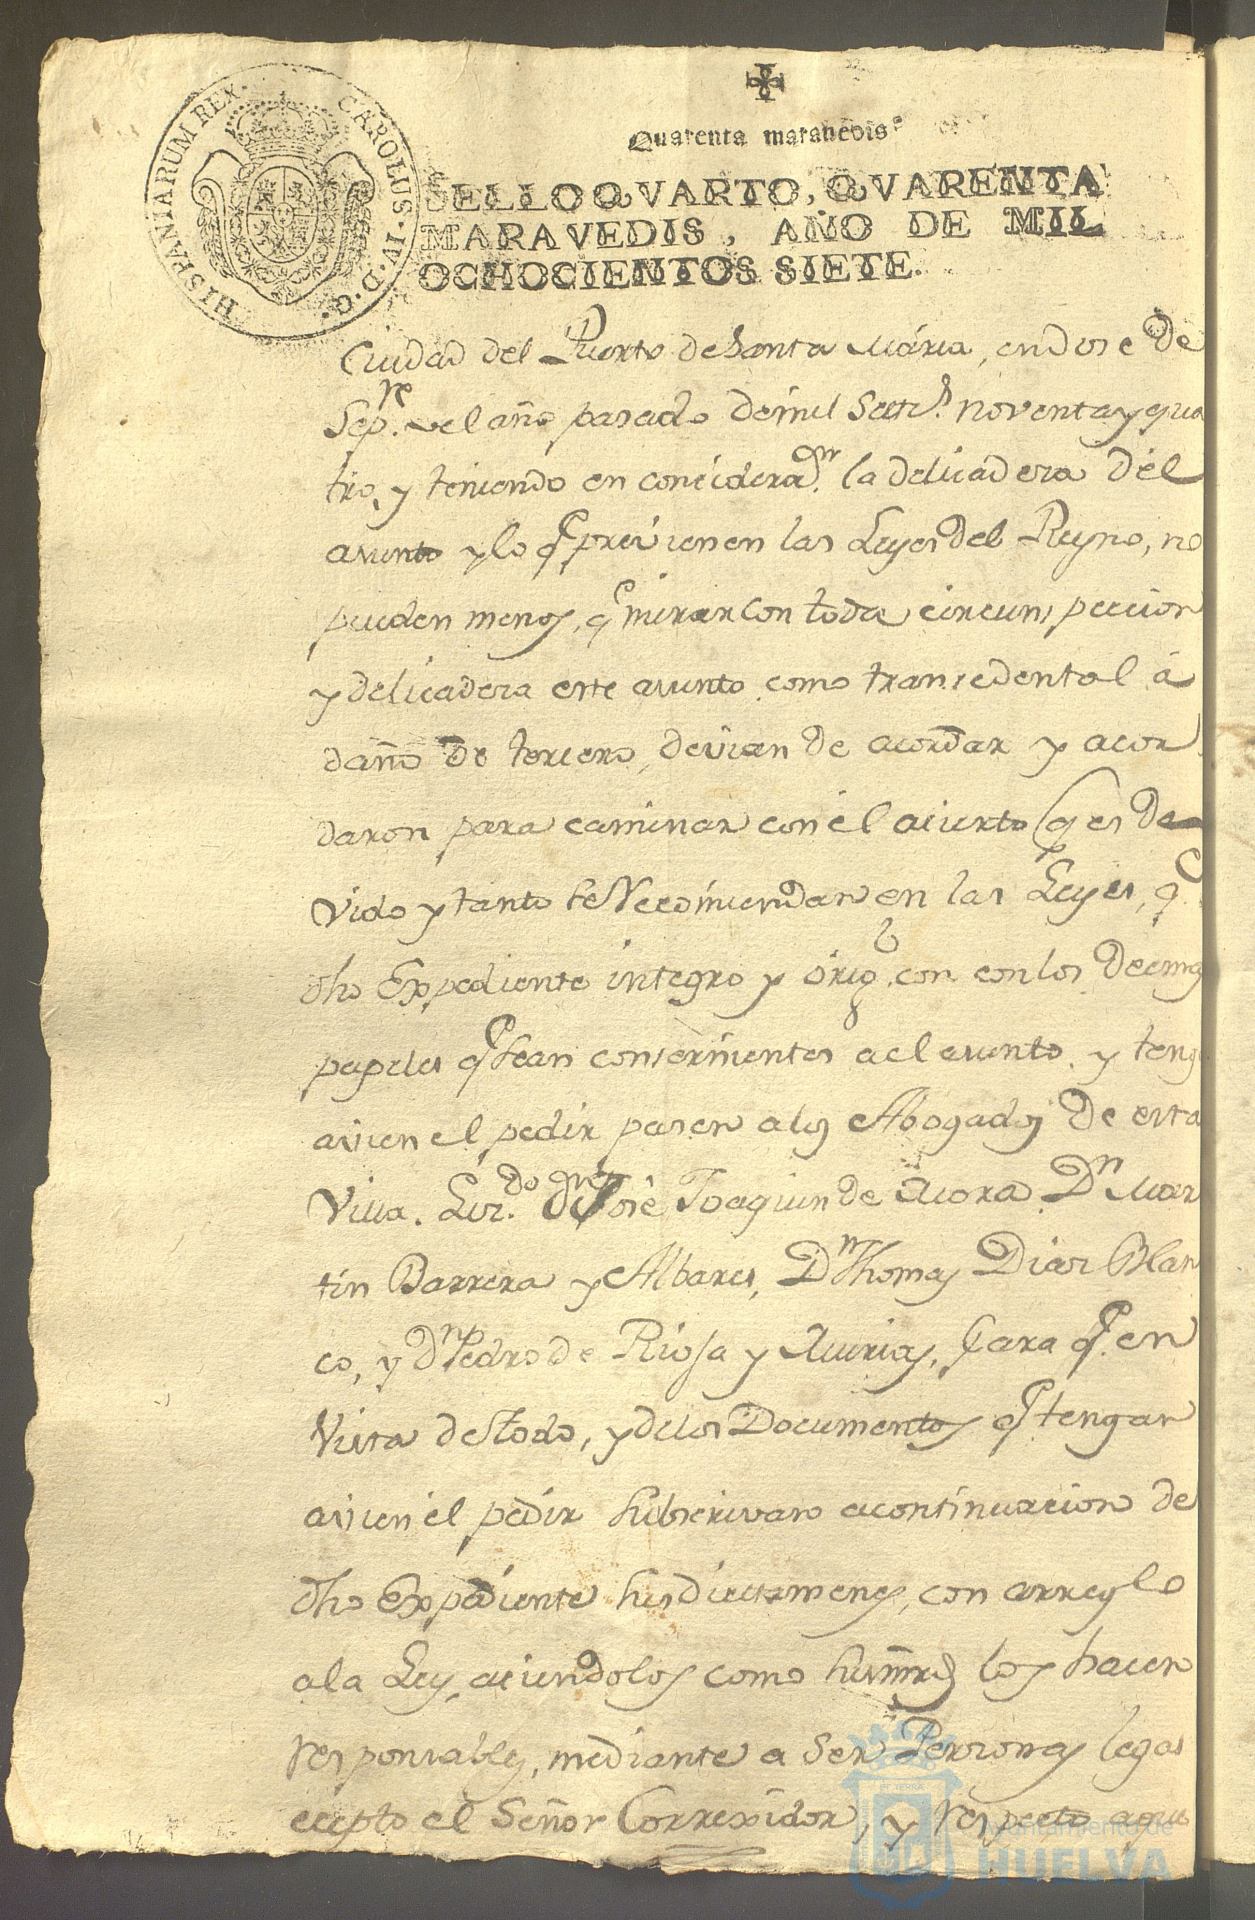 HISPANIARUM REX. CAROLUS IV D. G.
Quarenta maravedis
SELLO QVARTO, QVARENTA
MARAVEDIS, AÑO DE MIL
OCHOCIENTOS SIETE.
Ciudad del Puerto de Santa Maria, en dose de
Sepre. del año pasado de mil Setcs. noventa y qua
tro, y teniendo en considerazn. la delicadeza del
asunto y lo q previenen las Leyes del Reyno, no
pueden menos, q mirar con toda circunspeccion
y delicadeza este asunto como transedental á
daño de tercero, devian de acordar y acor
daron para caminar con el acierto (q es de
vido y tanto se Recomiendan en las Leyes, q
dho Expediente integro y orig. con con los demas
papeles q sean consernientes a el asunto y teng
avien el pedir pasen a los Abogados de esta
Villa. Lizdo. Dn José Joaquin de Mora Dn Mar
tin Barrera y Albares, Dn Thomas Dias Blan
co, y Dn Pedro de Riosa y Murias, para q en
Vista de todo, y de los Documentos q tengan
avien el pedir subscrivan acontinuacion de
dho Expediente sus dictamenes, con arreglo
a la Ley, aciendolos como sus mrds los hacen
responsables, mediante a ser Personas legas
ecepto el Señor Correxidor, y respecto aque
Ayuntamiento de
HUELVA